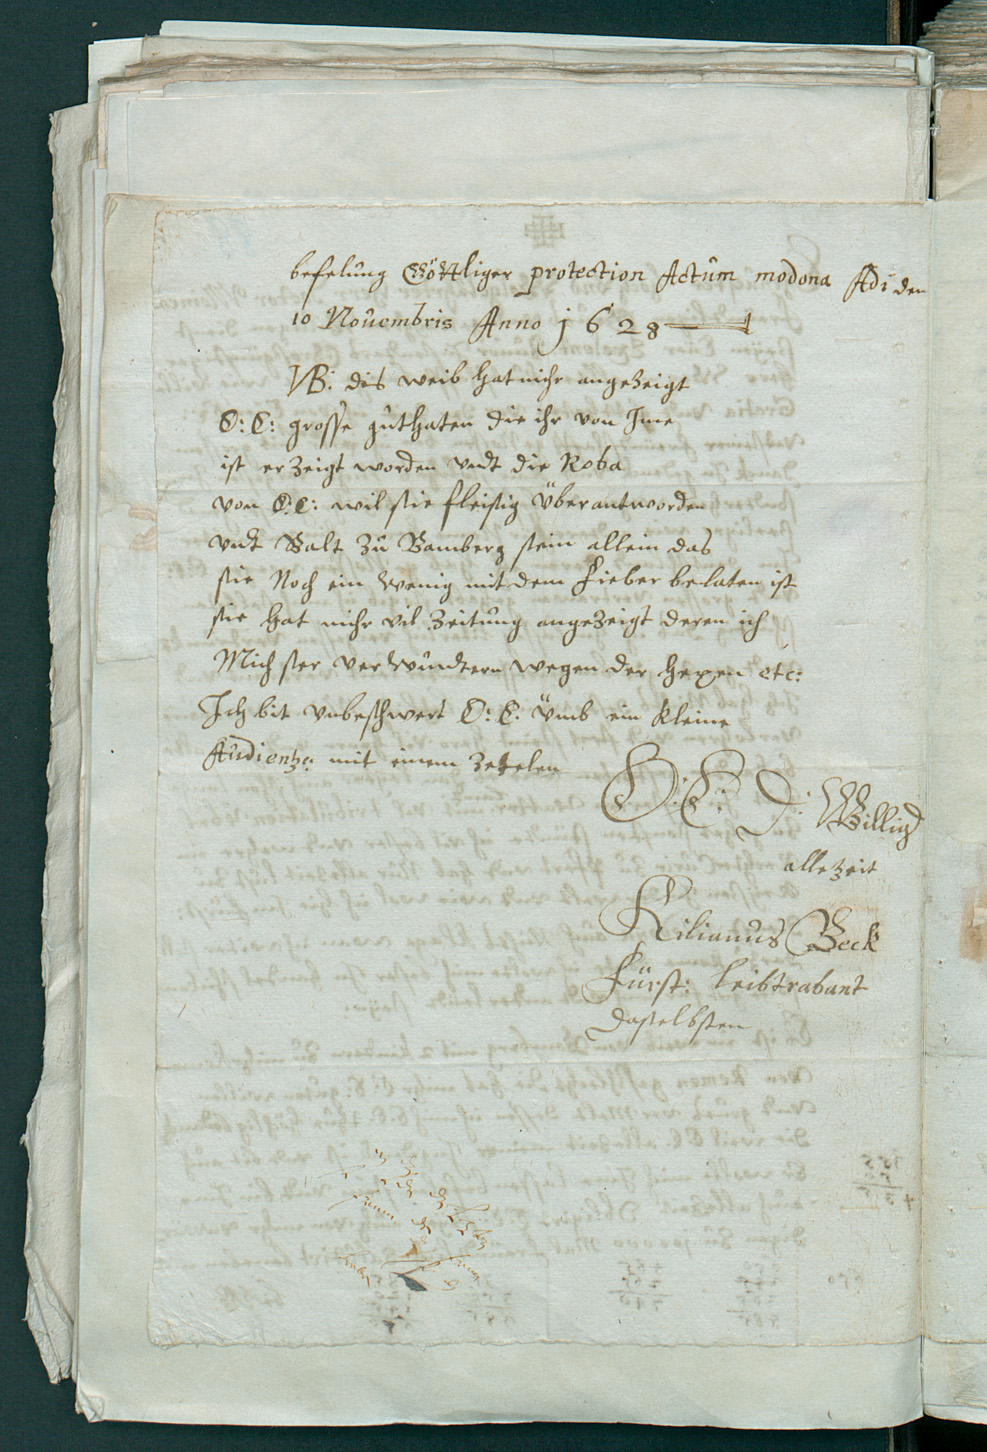 befelung Göttliger protection Actum modona Adi den
10 Nouembris Anno 1628
NB: dis weib hat mihr angezeigt
E: E: grosse guthaten die ihr von Ime
ist erzeigt worden vndt die Roba
von E: E: wil sie fleisig überantworden
vndt Balt zu Bamberg sein allein das
sie Noch ein wenig mit dem Fieber belaten ist
sie hat mihr vil Zeitung angezeigt deren ich
Mich ser verwundtern wegen der hexen etc:
Ich bit vnbeschwert E: E: ümb ein kleine
Audientza mit einem Zetelen
E: E: D: Willig
alle Zeit
Kilianus Beck
Fürst: leibtrabant
daselbsten